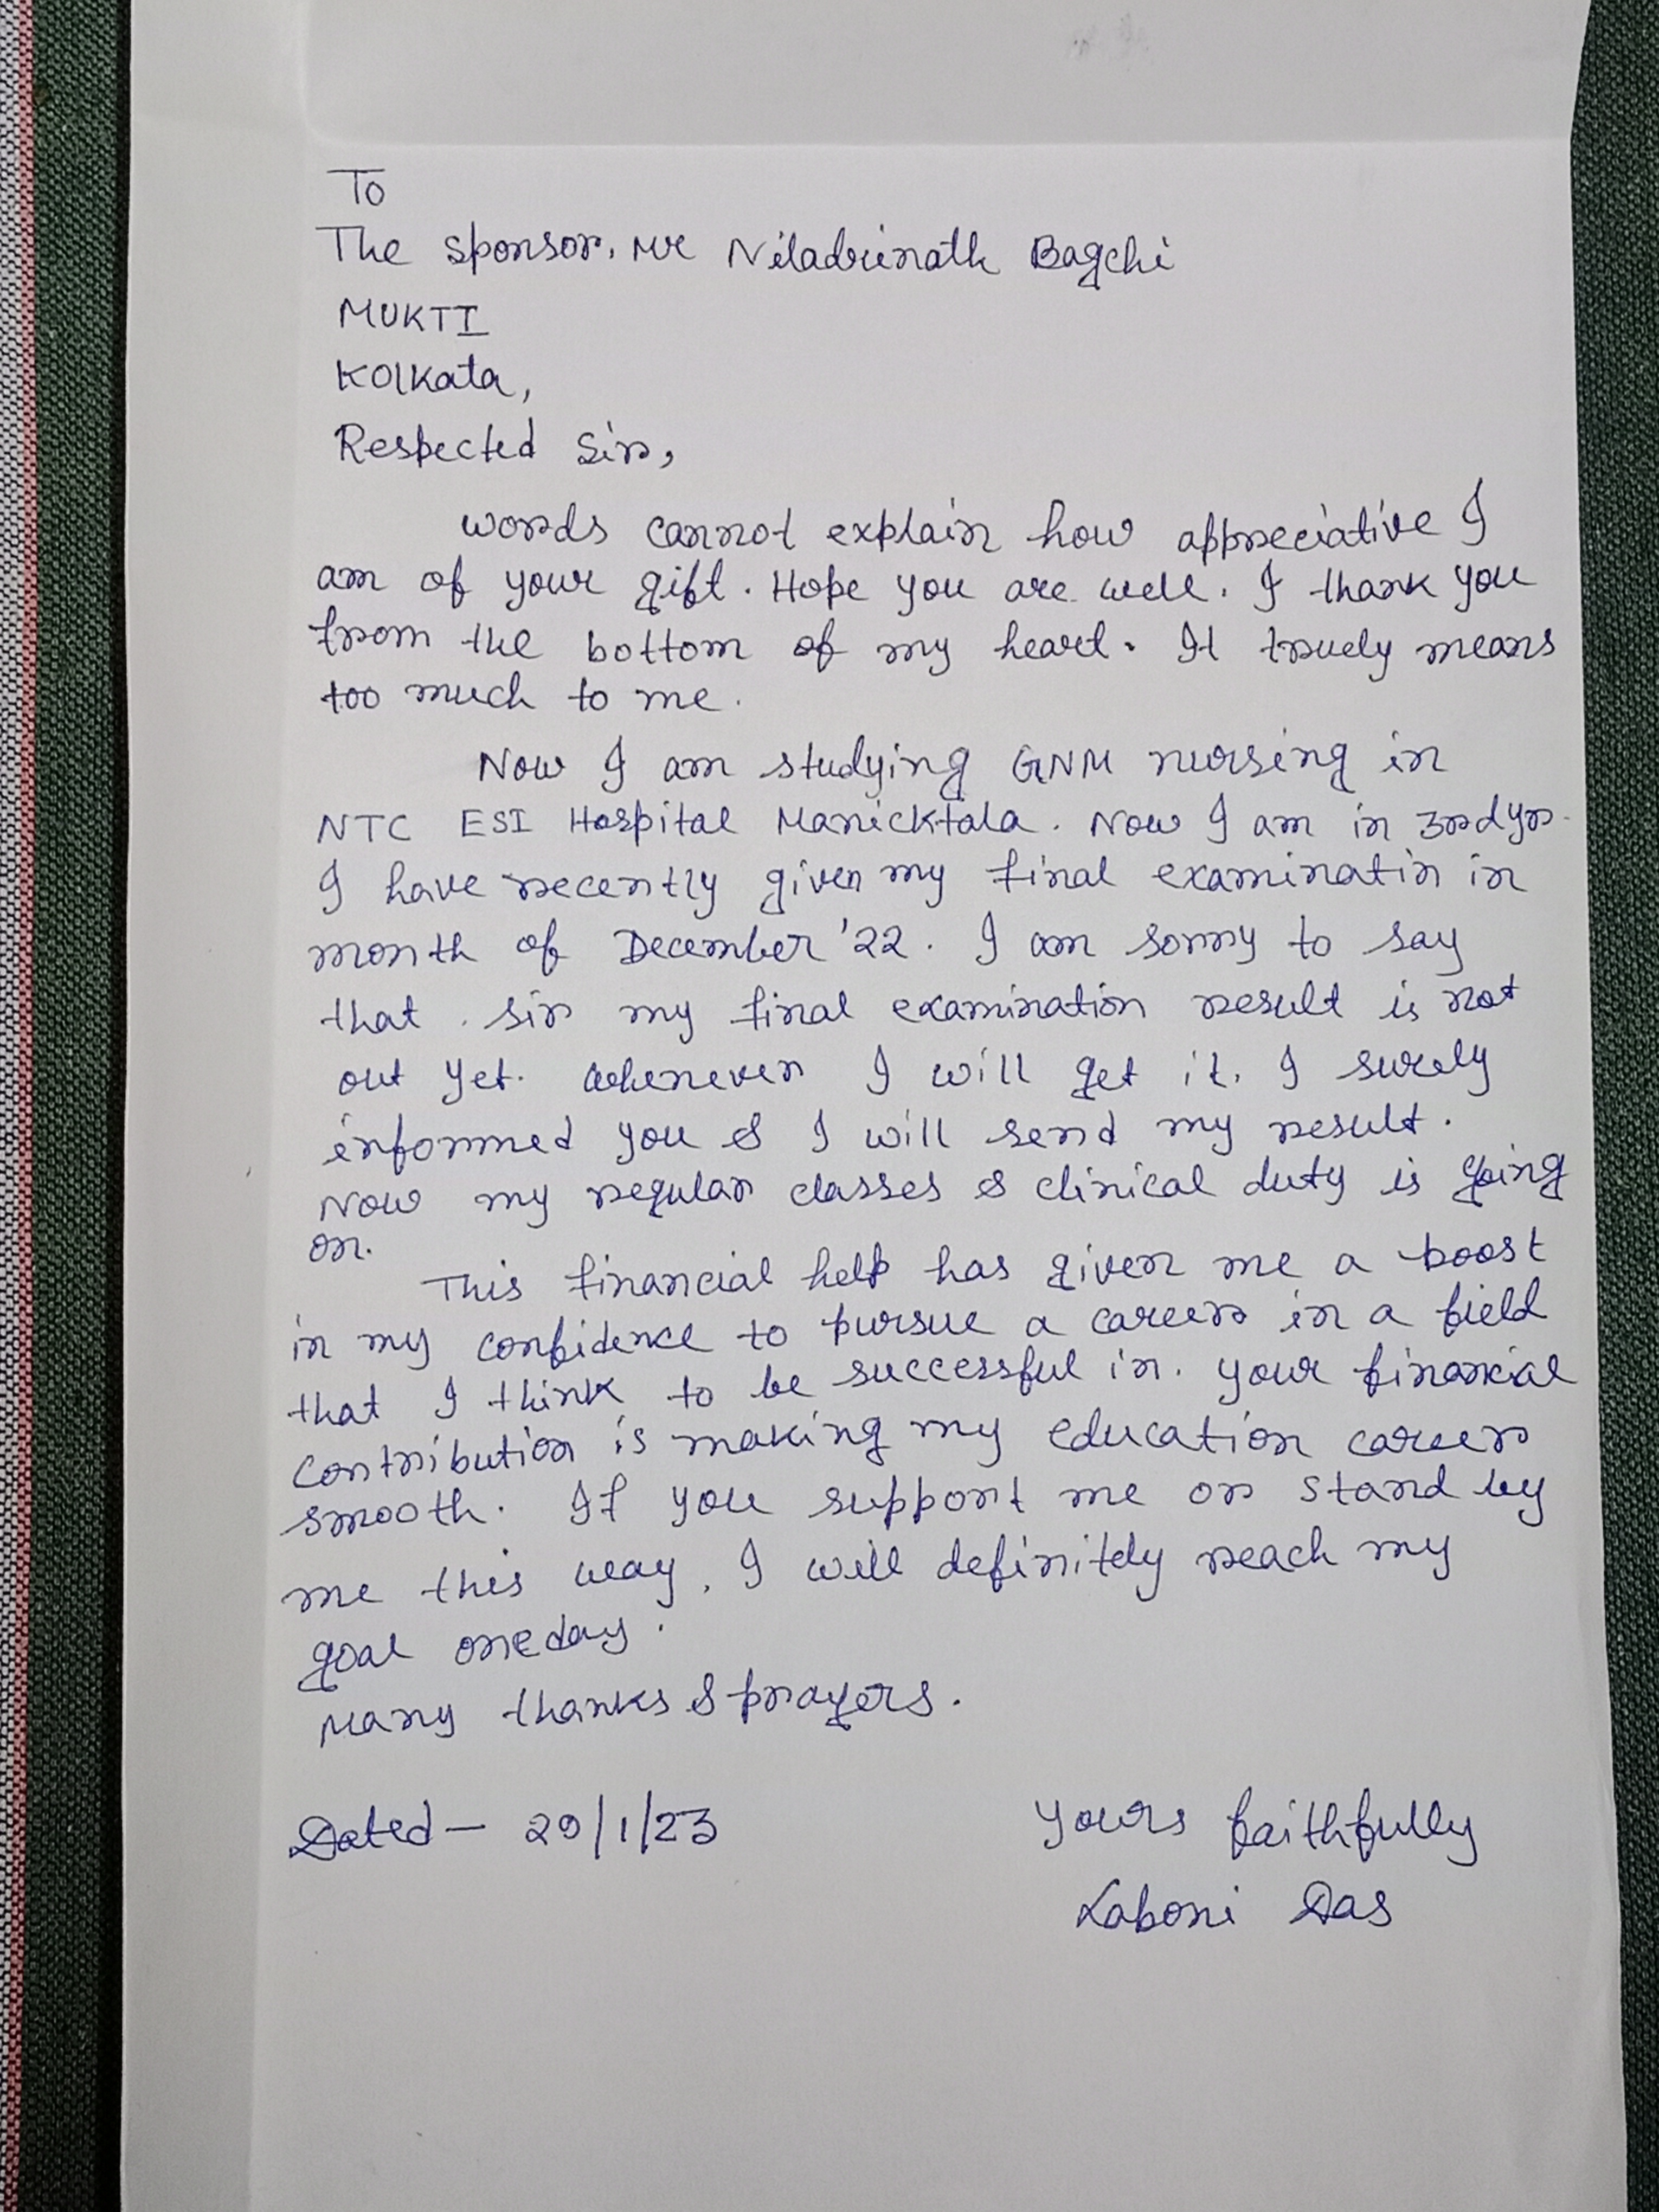 To
The sponsor, Mr Niladrinath Bagchi
MUKTI
Kolkata,
Respected Sir,
words cannot explain how appreciative I
am of your gift. Hope you are well. I thank you
from the bottom of my heart. It truely means
too much to me.
Now I am studying GNM nursing in
NTC ESI Hospital Manicktala. Now I am in 3rd yr.
I have recently given my final examinatin in
month of December '22. I am sorry to say
that . sir my final examination result is not
out yet. whenever I will get it, I surely
informed you & I will send my result.
Now my regular classes & clinical duty is going
on.
This financial help has given me a boost
in my confidence to pursue a career in a field
that I think to be successful in. your financial
contribution is making my education career
smooth. If you support me or stand by
me this way, I will definitely reach my
goal oneday.
Many thanks & prayers.
Dated- 29/1/23
yours faithfully
Laboni Das